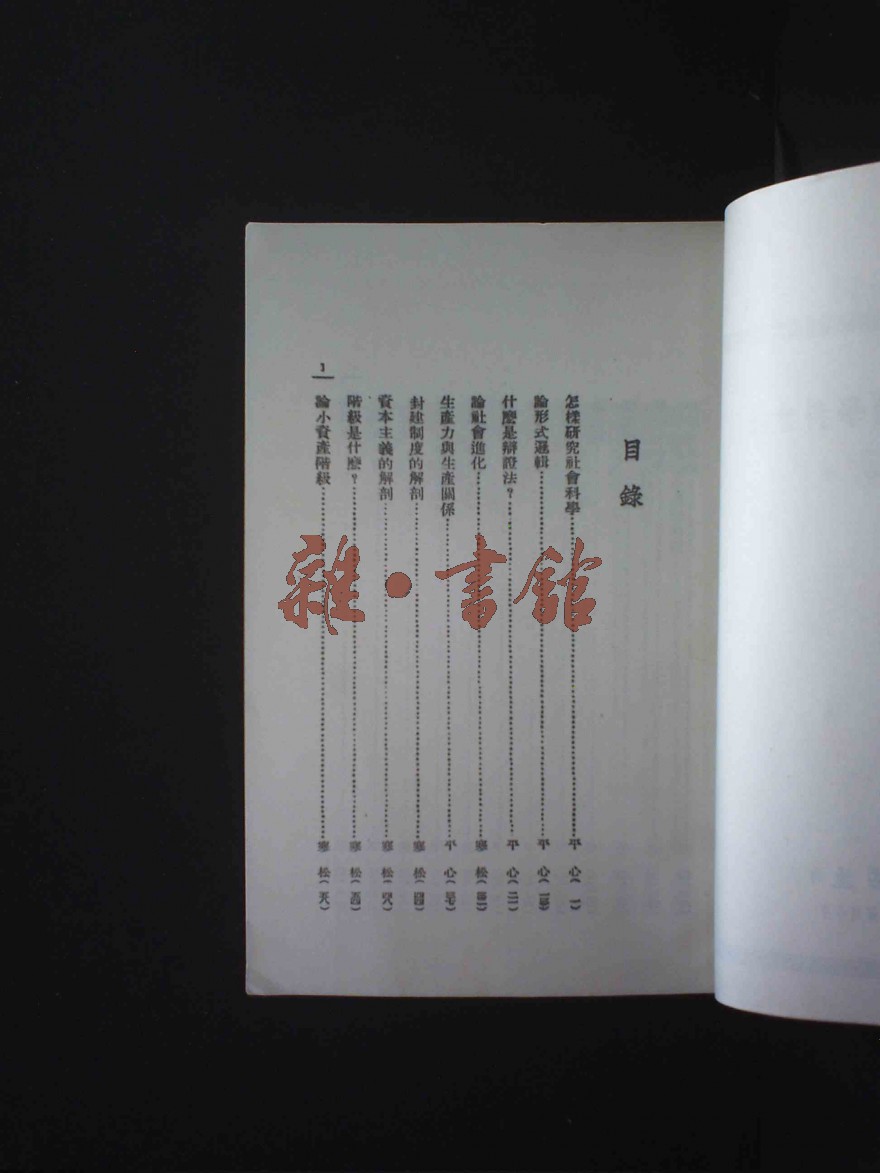 目錄
怎樣研究社會科學 平心(一)
論形式邏輯 平心
什麽是辯證法? 平心(二一)
論社會進化 寒松
生產力與生產關係 平心
封建制度的解剖 寒松
資本主義的解剖 寒松
階級是什麽? 寒松
論小資產階級 寒松(五八)
1
雜·書館